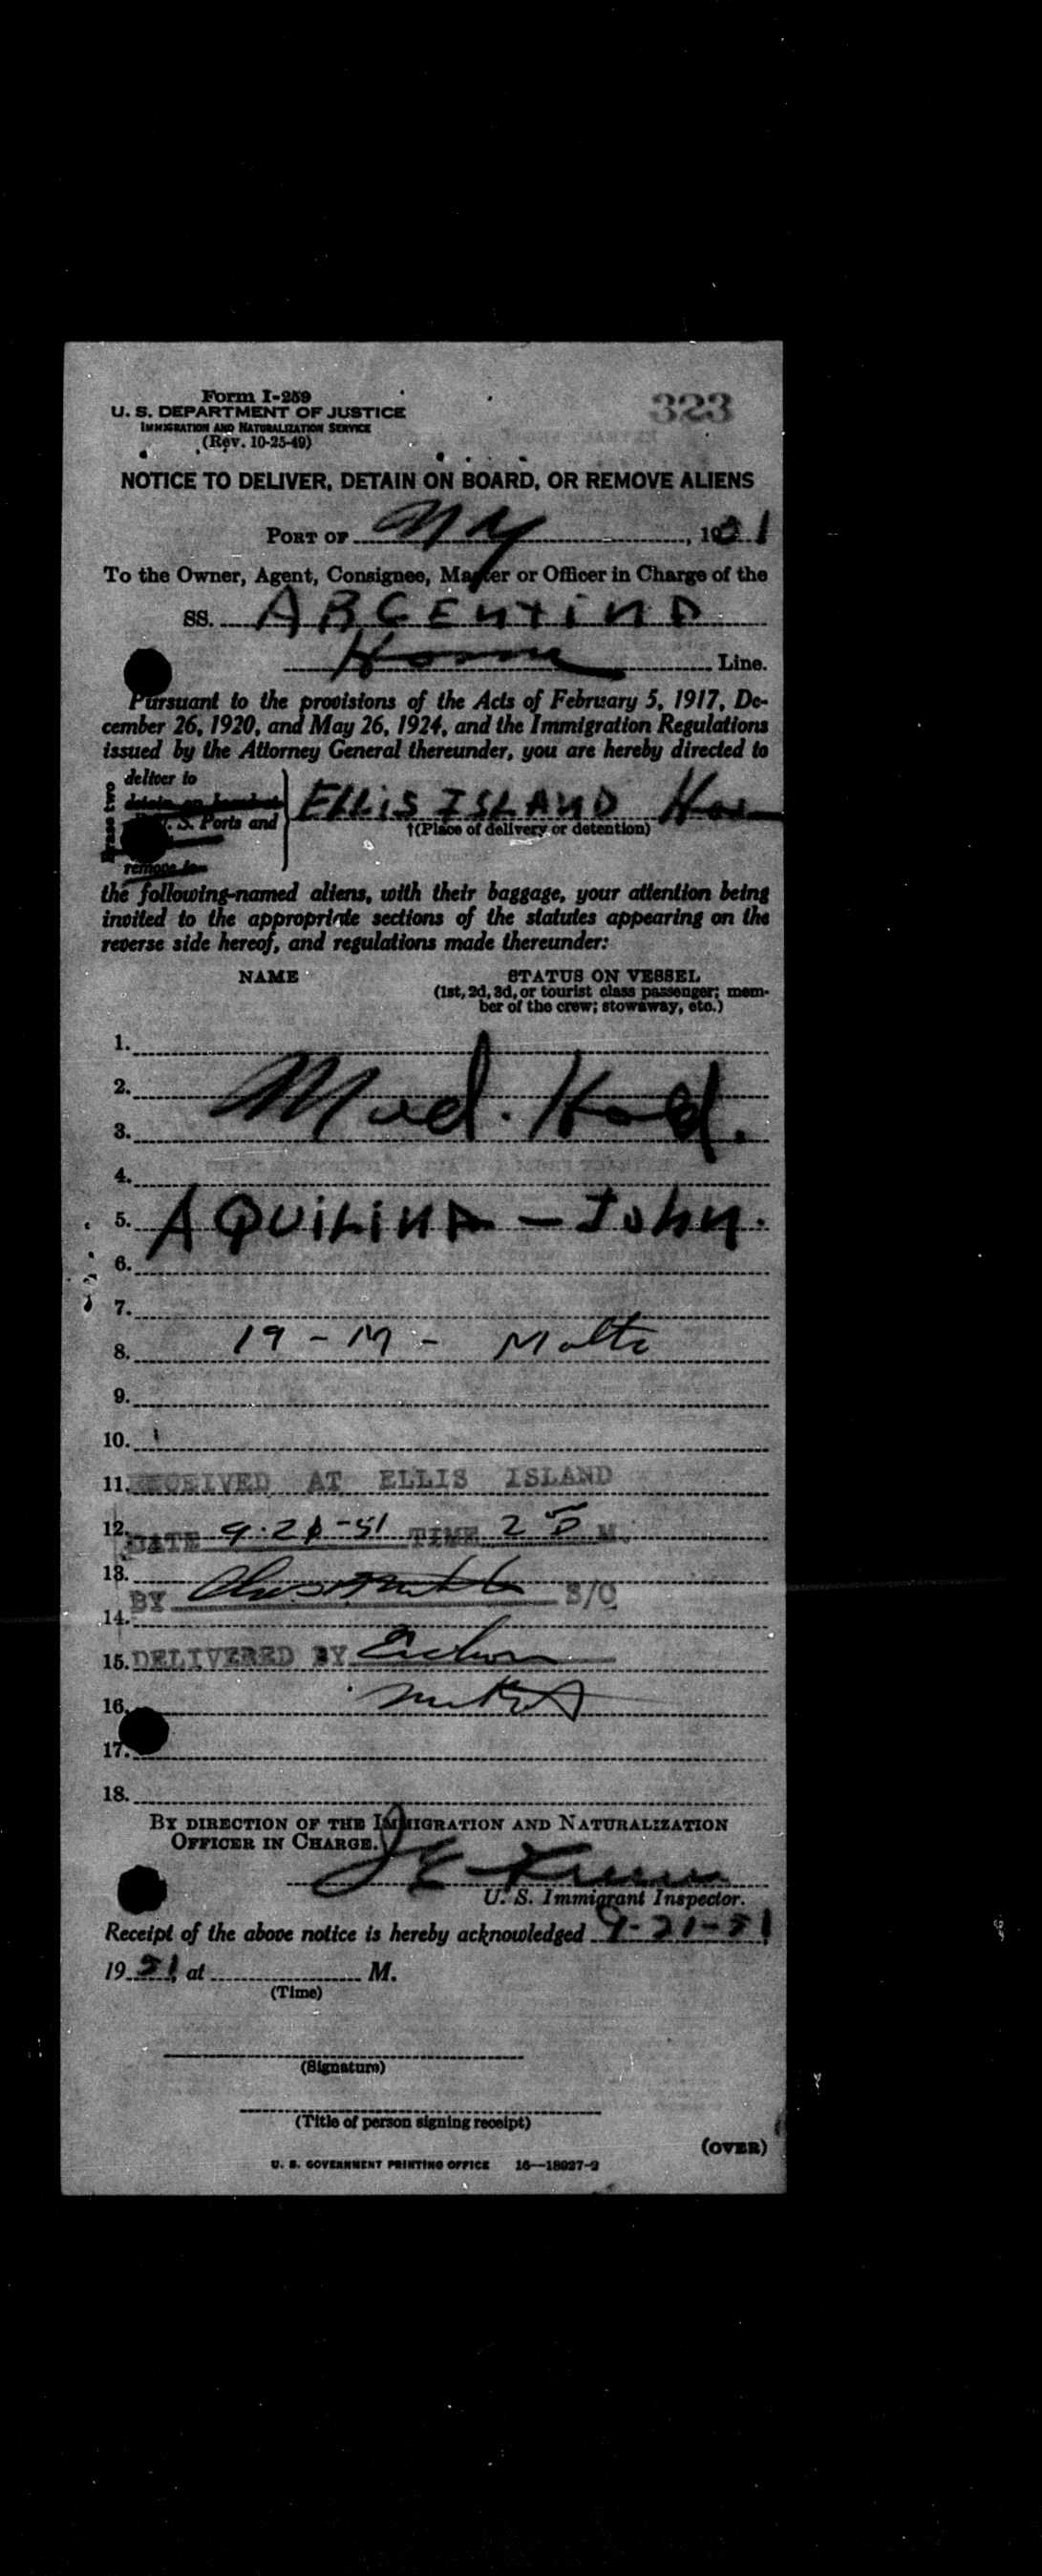 Form I-259
323
U. S. DEPARTMENT OF JUSTICE
IMMIGRATION AND NATURALIZATION SERVICE
(Rev. 10-25-49)
NOTICE TO DELIVER, DETAIN ON BOARD, OR REMOVE ALIENS
PORT OF NY, 1951
To the Owner, Agent, Consignee, Master or Officer in Charge of the
SS. ARGENTINA
Home Line.
Pursuant to the provisions of the Acts of February 5, 1917, De-
cember 26, 1920, and May 26, 1924, and the Immigration Regulations
issued by the Attorney General thereunder, you are hereby directed to
deliver to
ELLIS ISLAND
S. Ports and
†(Place of delivery or detention)
remove to
the following-named aliens, with their baggage, your attention being
invited to the appropriate sections of the statutes appearing on the
reverse side hereof, and regulations made thereunder:
NAME STATUS ON VESSEL
(1st, 2d, 3d, or tourist class passenger; mem-
ber of the crew; stowaway, etc.)
1.
2. Med. Hold.
3.
4.
5. AQUILINA - John.
6.
7.
8. 19 - M - Malta
9.
10.
11. RECEIVED AT ELLIS ISLAND
12. DATE 9-21-51 TIME 2 M.
13.
BY S/O
14.
15. DELIVERED BY
16.
17.
18.
BY DIRECTION OF THE IMMIGRATION AND NATURALIZATION
OFFICER IN CHARGE.
U. S. Immigrant Inspector.
Receipt of the above notice is hereby acknowledged 9-21-51,
19 51, at M.
(Time)
(Signature)
(Title of person signing receipt)
(OVER)
U. S. GOVERNMENT PRINTING OFFICE 16—18927-2